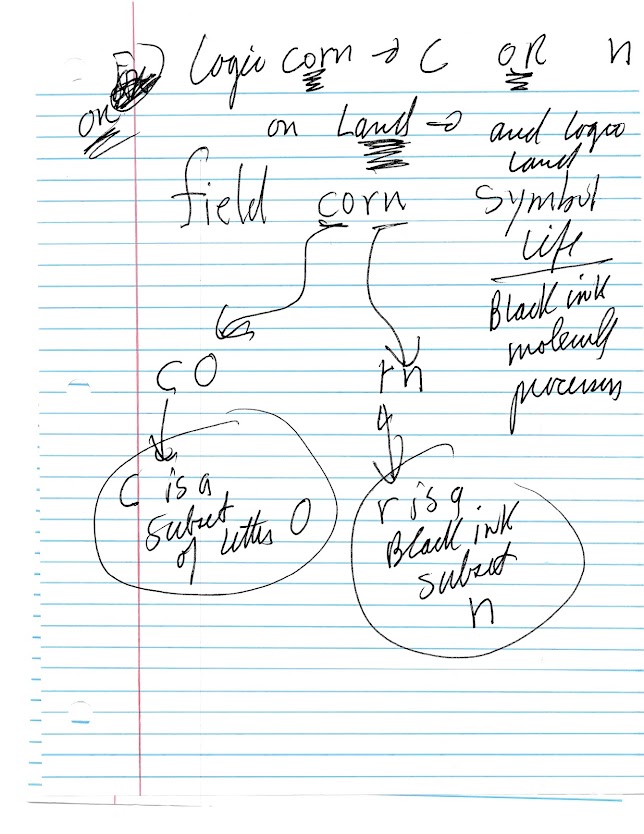 Logic corn → C OR n
OR
on Land → and logic
Land
field corn symbol
Life
Black ink
molecule
processes
CO rn
C is a
subset
of letter O
r is a
Black ink
subset
n